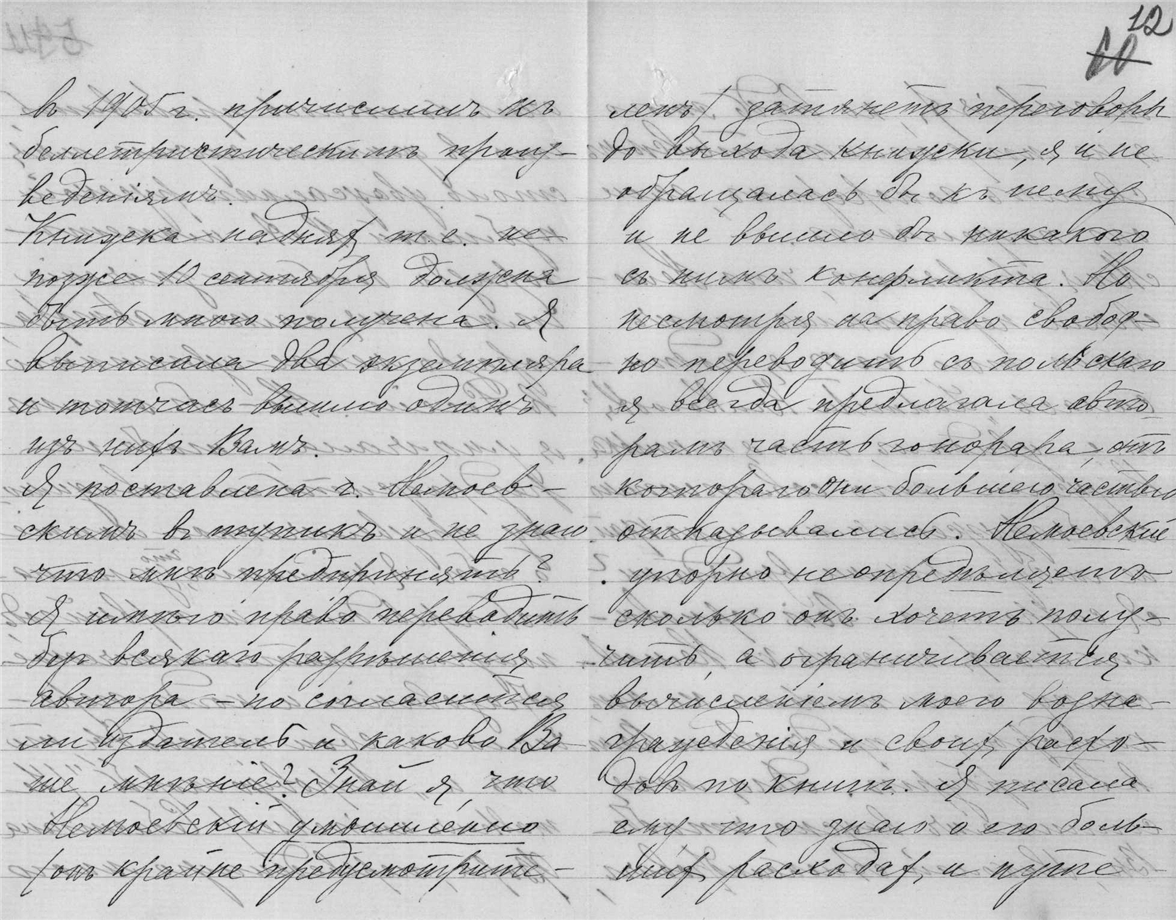 12
60
в 1905 г. причислить къ
беллетристическимъ произ-
веденіямъ.
Книжка на дняхъ т.е. не
позже 10 сентября должна
быть мною получена. Я
выписала два экземпляра
и тотчасъ вышлю одинъ
изъ нихъ Вамъ.
Я поставлена г. Немоев-
скимъ в тупикъ и не знаю
что мнѣ предпринять?
Я имѣю право переводить
без всякаго разрѣшенія
автора – но согласится
ли издатель и каково Ва-
ше мнѣніе? Знай я, что
Немоевскій умышленно
(онъ крайне предусмотрите-
ленъ) затянетъ переговоры
до выхода книжки, я и не
обращалась бы къ нему
и не вышло бы никакого
съ нимъ конфликта. Но
несмотря на право свобод-
но переводить съ польскаго
я всегда предлагала авто
рамъ часть гонорара, отъ
котораго они большею частью
отказывались. Немоевскій
упорно не опредѣляетъ
сколько онъ хочетъ полу-
чить а ограничивается
вычисленіемъ моего возна-
гражденія и своихъ расхо-
довъ по книгѣ. Я писала
ему что знаю о его боль-
шихъ расходахъ и